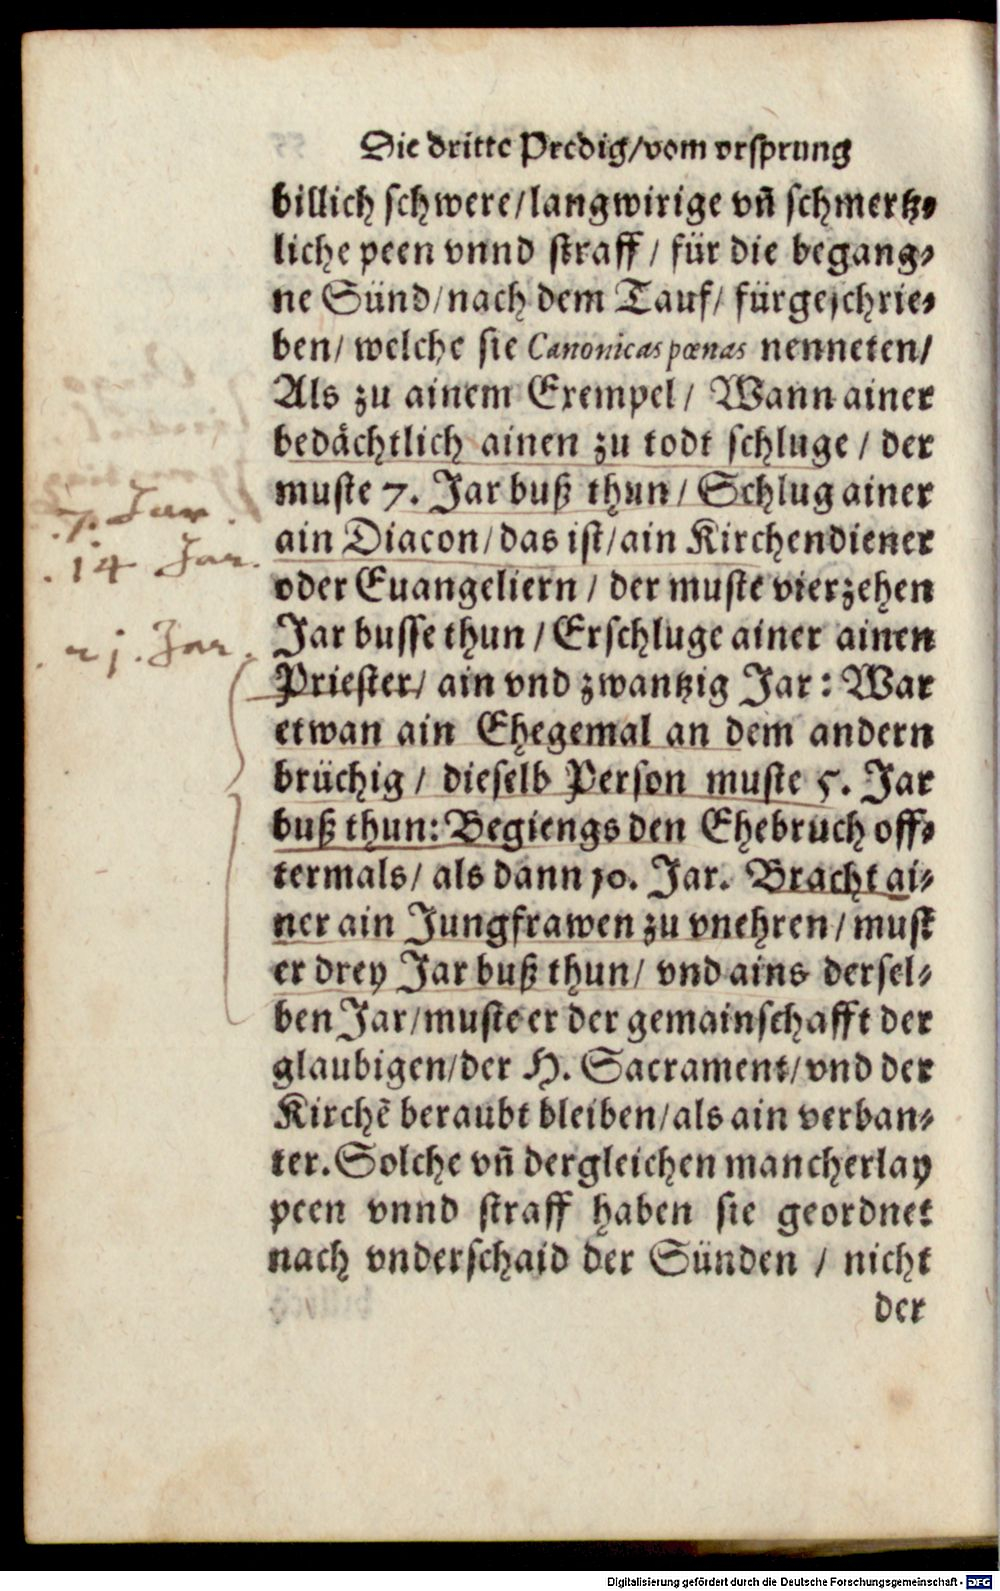 Die dritte Predig/vom vrsprung
billich schwere/langwirige vñ schmertz⸗
liche peen vnnd straff / für die begang⸗
ne Sünd/nach dem Tauf/ fürgeschrie⸗
ben/ welche sie Canonicas pœnas nenneten/
Als zu ainem Exempel/ Wann ainer
bedächtlich ainen zu todt schluge / der
muste 7. Jar buß thun/ Schlug ainer
7. Jar.
ain Diacon/das ist/ain Kirchendiener
14 Jar.
oder Euangeliern / der muste vierzehen
Jar busse thun / Erschluge ainer ainen
21. Jar.
Priester/ ain vnd zwantzig Jar: War
etwan ain Ehegemal an dem andern
brüchig / dieselb Person muste 5. Jar
buß thun: Begiengs den Ehebruch off⸗
termals/ als dann 10. Jar. Bracht ai⸗
ner ain Jungfrawen zu vnehren/ must
er drey Jar buß thun/ vnd ains dersel⸗
ben Jar/muste er der gemainschafft der
glaubigen/der H. Sacrament/vnd der
Kirchẽ beraubt bleiben/als ain verban⸗
ter. Solche vñ dergleichen mancherlay
peen vnnd straff haben sie geordnet
nach vnderschaid der Sünden / nicht
der
Digitalisierung gefördert durch die Deutsche Forschungsgemeinschaft - DFG